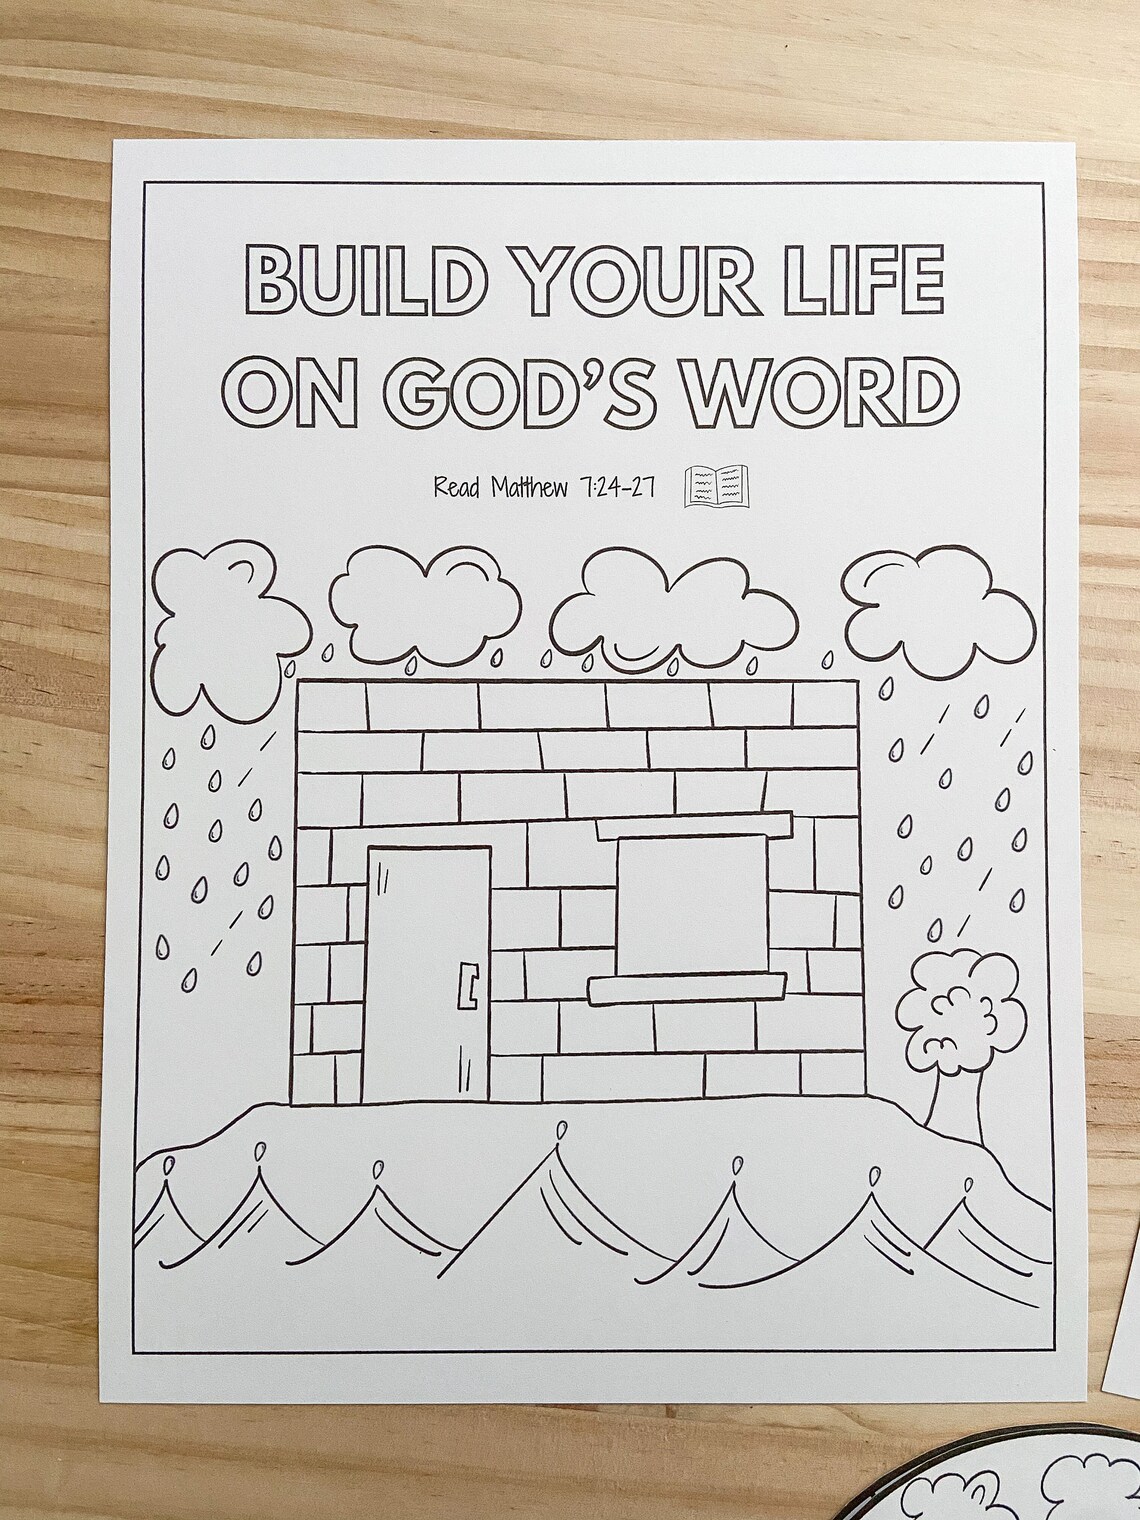 BUILD YOUR LIFE
ON GOD'S WORD
Read Matthew 7:24-27